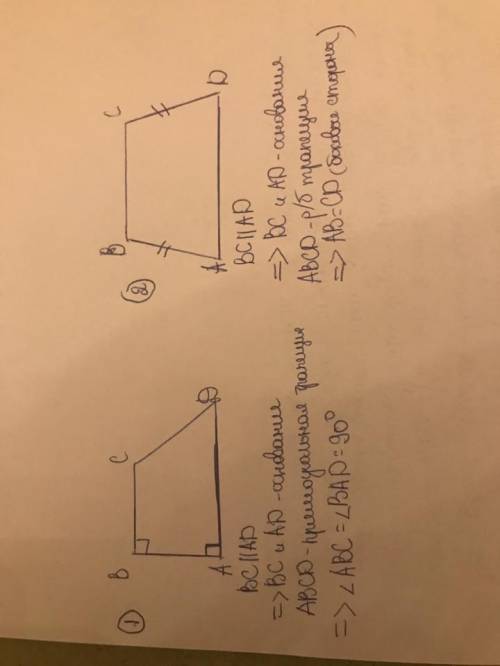 ①
B
C
A
D
BC||AD
=> BC и AD - основания
ABCD - прямоугольная трапеция
=> ∠ABC = ∠BAD = 90°
②
B
C
A
D
BC||AD
=> BC и AD - основания
ABCD - р/б трапеция
=> AB = CD (боковые стороны)